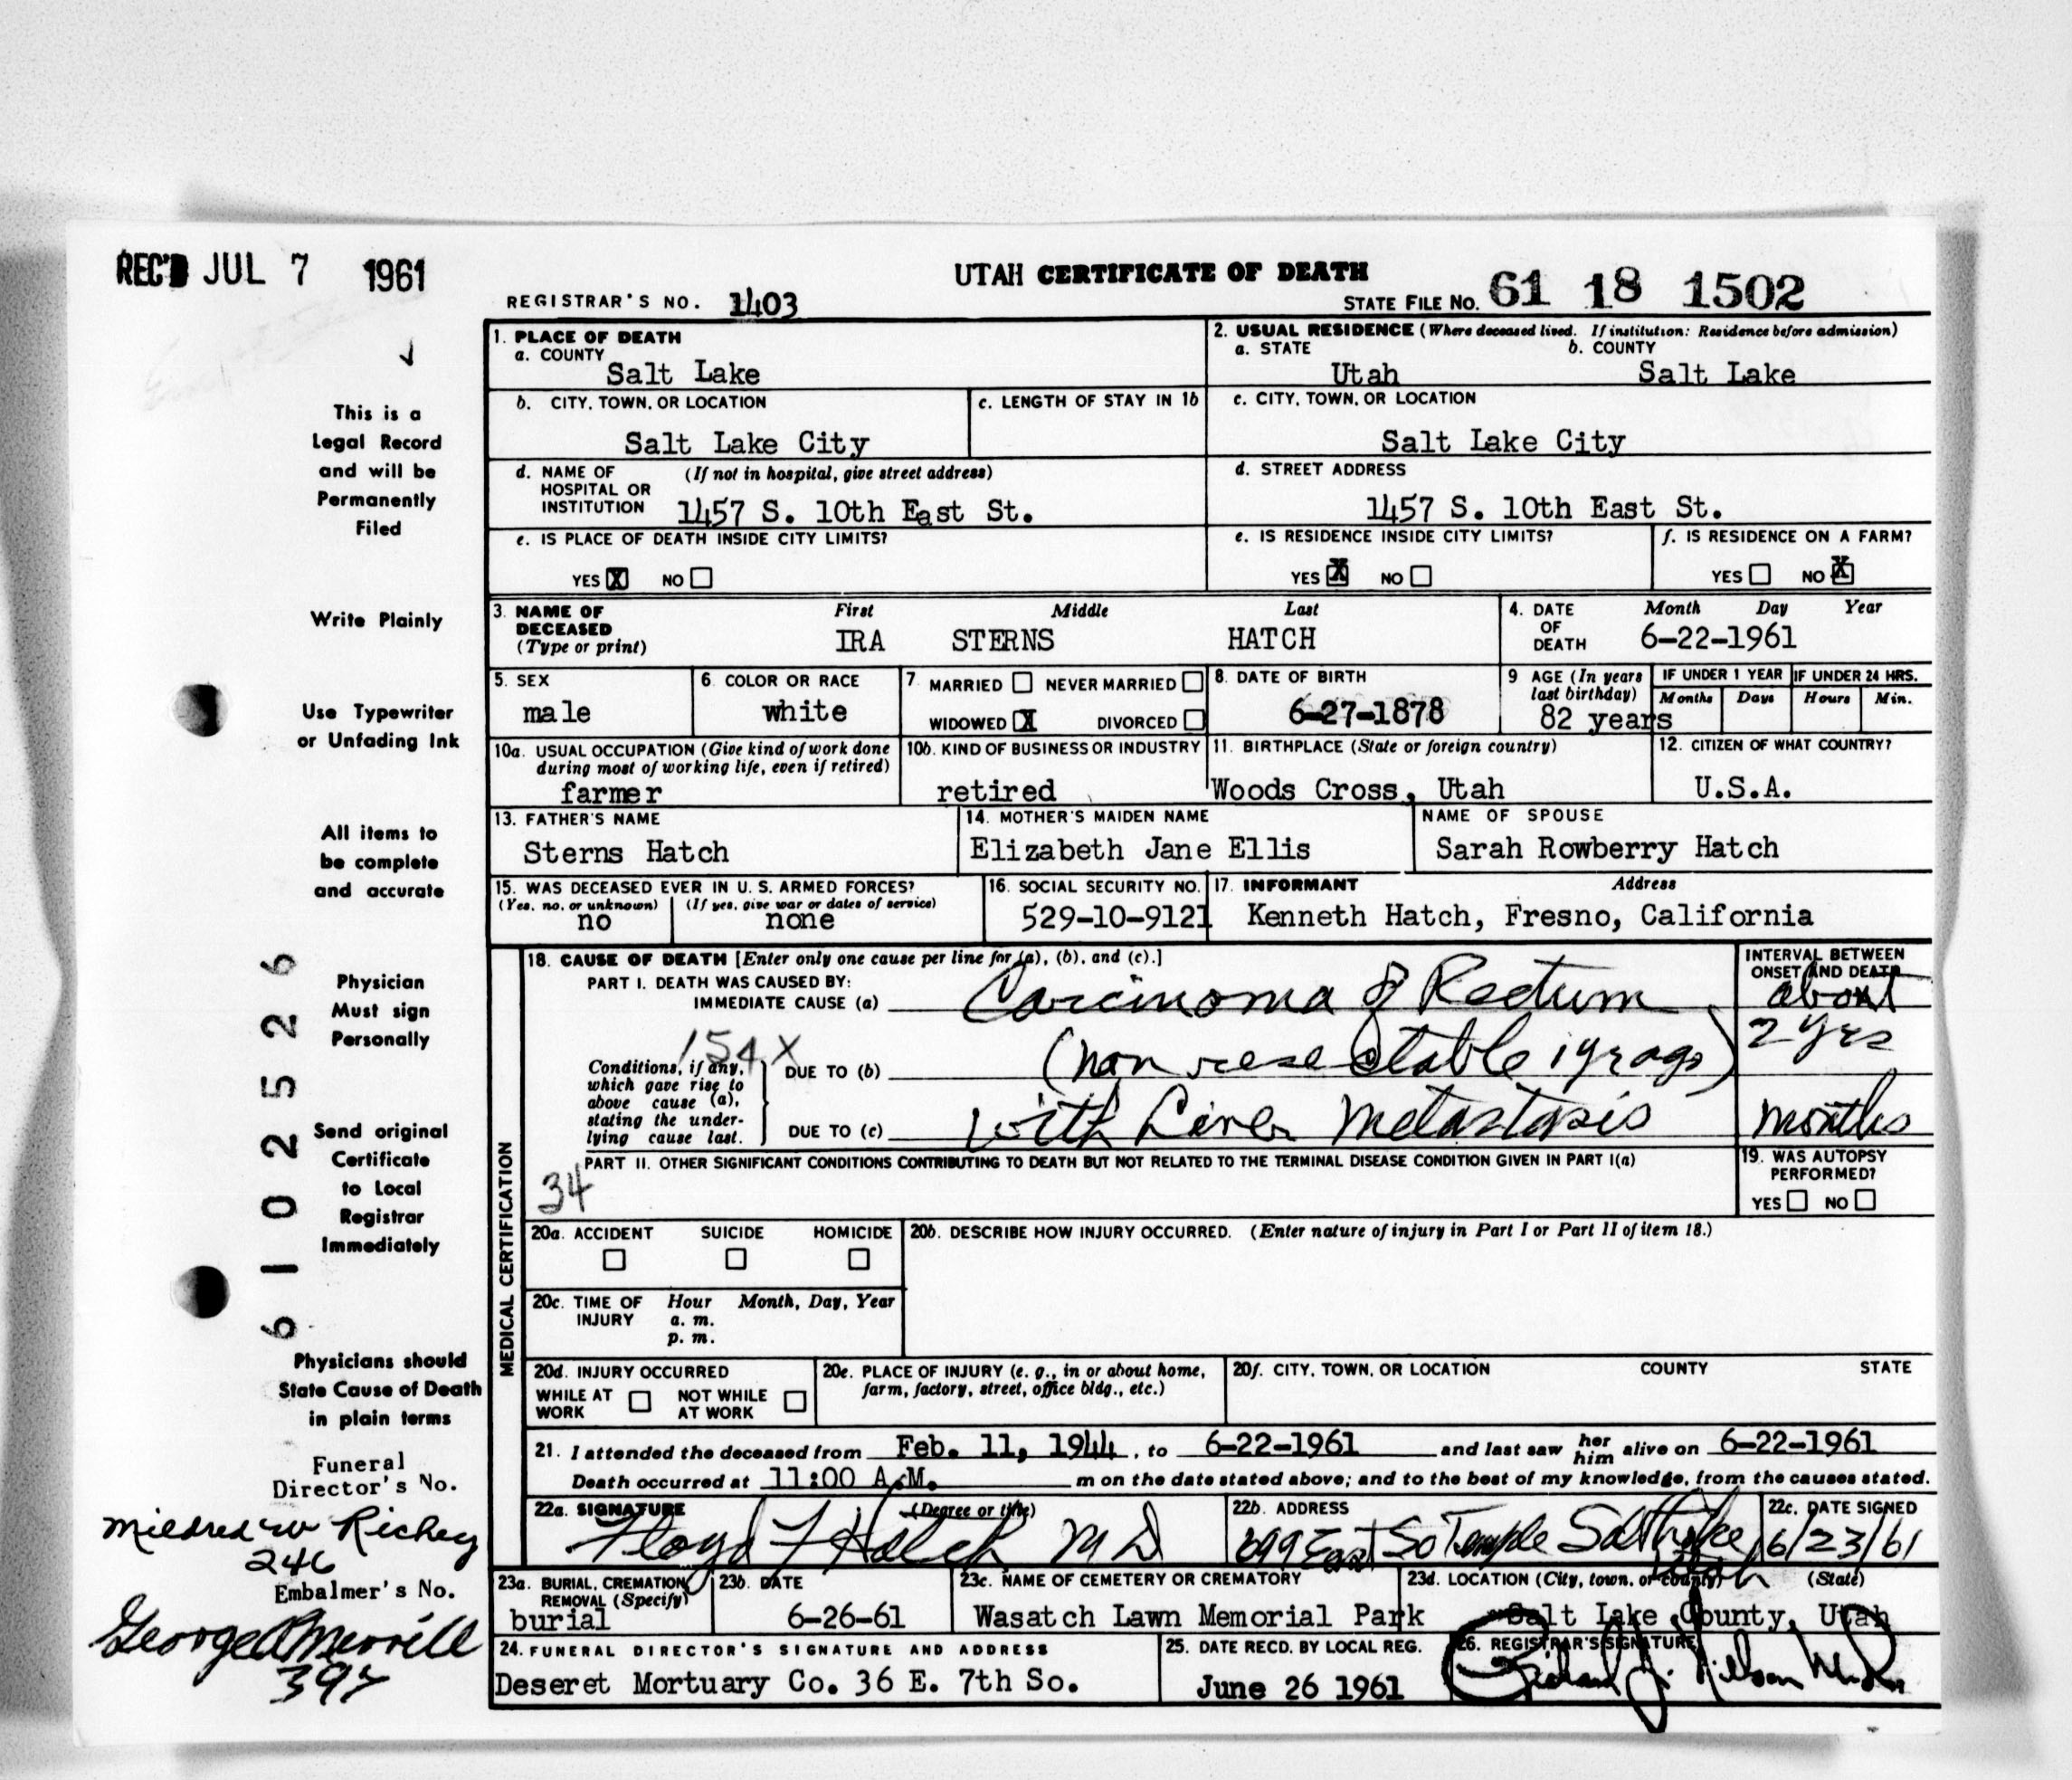 REC'D JUL 7 1961
UTAH CERTIFICATE OF DEATH
REGISTRAR'S NO. 1403
STATE FILE NO. 61 18 1502
This is a
Legal Record
and will be
Permanently
Filed
Write Plainly
Use Typewriter
or Unfading Ink
All items to
be complete
and accurate
Physician
Must sign
Personally
Send original
Certificate
to Local
Registrar
Immediately
Physicians should
State Cause of Death
in plain terms
Funeral
Director's No.
Mildred W Richey
246
Embalmer's No.
George Merrill
397
6 1 0 2 5 5 2 6
1. PLACE OF DEATH
a. COUNTY
Salt Lake
2. USUAL RESIDENCE (Where deceased lived. If institution: Residence before admission)
a. STATE b. COUNTY
Utah Salt Lake
b. CITY, TOWN, OR LOCATION
Salt Lake City
c. LENGTH OF STAY IN 1b
c. CITY, TOWN, OR LOCATION
Salt Lake City
d. NAME OF (If not in hospital, give street address)
HOSPITAL OR
INSTITUTION 1457 S. 10th East St.
d. STREET ADDRESS
1457 S. 10th East St.
e. IS PLACE OF DEATH INSIDE CITY LIMITS?
YES X NO
e. IS RESIDENCE INSIDE CITY LIMITS?
YES X NO
f. IS RESIDENCE ON A FARM?
YES NO X
3. NAME OF First Middle Last
DECEASED
(Type or print) IRA STERNS HATCH
4. DATE Month Day Year
OF
DEATH 6-22-1961
5. SEX
male
6. COLOR OR RACE
white
7. MARRIED NEVER MARRIED
WIDOWED X DIVORCED
8. DATE OF BIRTH
6-27-1878
9 AGE (In years
last birthday)
82 years
IF UNDER 1 YEAR IF UNDER 24 HRS.
Months Days Hours Min.
10a. USUAL OCCUPATION (Give kind of work done
during most of working life, even if retired)
farmer
10b. KIND OF BUSINESS OR INDUSTRY
retired
11. BIRTHPLACE (State or foreign country)
Woods Cross, Utah
12. CITIZEN OF WHAT COUNTRY?
U.S.A.
13. FATHER'S NAME
Sterns Hatch
14. MOTHER'S MAIDEN NAME
Elizabeth Jane Ellis
NAME OF SPOUSE
Sarah Rowberry Hatch
15. WAS DECEASED EVER IN U. S. ARMED FORCES?
(Yes, no, or unknown) (If yes, give war or dates of service)
no none
16. SOCIAL SECURITY NO.
529-10-9121
17. INFORMANT Address
Kenneth Hatch, Fresno, California
MEDICAL CERTIFICATION
18. CAUSE OF DEATH [Enter only one cause per line for (a), (b), and (c).]
PART I. DEATH WAS CAUSED BY:
IMMEDIATE CAUSE (a) Carcinoma of Rectum
INTERVAL BETWEEN
ONSET AND DEATH
about
2 yrs
154X
Conditions, if any,
which gave rise to
above cause (a),
stating the under-
lying cause last.
DUE TO (b) (non resectable 1 yr ago)
DUE TO (c) with Liver Metastasis
months
PART II. OTHER SIGNIFICANT CONDITIONS CONTRIBUTING TO DEATH BUT NOT RELATED TO THE TERMINAL DISEASE CONDITION GIVEN IN PART I(a)
34
19. WAS AUTOPSY
PERFORMED?
YES NO
20a. ACCIDENT SUICIDE HOMICIDE
20b. DESCRIBE HOW INJURY OCCURRED. (Enter nature of injury in Part I or Part II of item 18.)
20c. TIME OF Hour Month, Day, Year
INJURY a. m.
p. m.
20d. INJURY OCCURRED
WHILE AT NOT WHILE
WORK AT WORK
20e. PLACE OF INJURY (e. g., in or about home,
farm, factory, street, office bldg., etc.)
20f. CITY, TOWN, OR LOCATION COUNTY STATE
21. I attended the deceased from Feb. 11, 1944, to 6-22-1961 and last saw her him alive on 6-22-1961
Death occurred at 11:00 A.M. m on the date stated above; and to the best of my knowledge, from the causes stated.
22a. SIGNATURE (Degree or title)
Floyd F Hatch M D
22b. ADDRESS
699 East So Temple Salt Lake
Utah
22c. DATE SIGNED
6/23/61
23a. BURIAL, CREMATION,
REMOVAL (Specify)
burial
23b. DATE
6-26-61
23c. NAME OF CEMETERY OR CREMATORY
Wasatch Lawn Memorial Park
23d. LOCATION (City, town, or county) (State)
Salt Lake County, Utah
24. FUNERAL DIRECTOR'S SIGNATURE AND ADDRESS
Deseret Mortuary Co. 36 E. 7th So.
25. DATE RECD. BY LOCAL REG.
June 26 1961
26. REGISTRAR'S SIGNATURE